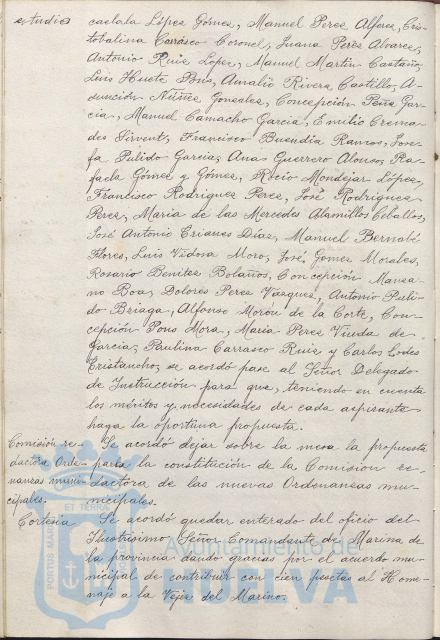 estudio
caelala López Gómez, Manuel Perez Alferez, Cris-
tobalina Carrasco Coronel, Juana Perez Alvarez,
Antonio Ruiz Lopez, Manuel Martin Castaño,
Luis Hueto Bnus, Aurelio Rivera Castillo, A-
sunción Núñez Gonzalez, Concepción Peña Gar-
cia, Manuel Camacho Garcia, Emilio Crema-
des Sirvent, Francisco Buendia Ramos, Jose-
fa Pulido Garcia, Ana Guerrero Alonso, Ra-
faela Gómez y Gómez, Rocio Mondejar López,
Francisco Rodriguez Perez, José Rodriguez
Perez, Maria de las Mercedes Alamillos Ceballos,
José Antonio Crianes Díaz, Manuel Bernabé
Flores, Luis Vidosa Moro, José Gómez Morales,
Rosario Benitez Bolaños, Concepción Manza-
no Boa, Dolores Perez Vázquez, Antonio Puli-
do Briaga, Alfonso Morón de la Corte, Con-
cepción Pons Mora, Maria Perez Viuda de
Garcia, Paulina Carrasco Ruiz y Carlos Lodes
Cristancho, se acordó pase al Señor Delegado
de Instrucción para que, teniendo en cuenta
los méritos y necesidades de cada aspirante
haga la oportuna propuesta.
Comisión re-
dactora Orde-
nanzas muni-
cipales.
Se acordó dejar sobre la mesa la propuesta
para la constitución de la Comisión re-
dactora de las nuevas Ordenanzas mu-
nicipales.
Cortesia
Se acordó quedar enterado del oficio del
Ilustrisimo Señor Comandante de Marina de
la provincia dando gracias por el acuerdo mu-
nicipal de contribuir con cien pesetas al Home-
naje a la Vejez del Marino.
PORTUS MARIS ET TERRAE
Ayuntamiento de
HUELVA